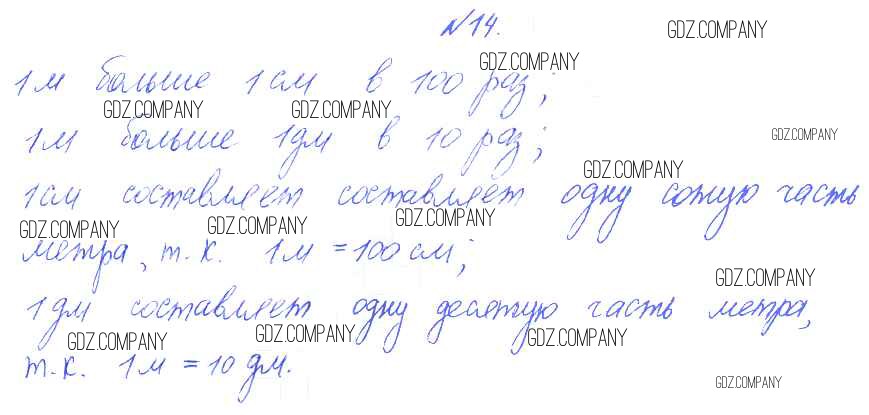 №14.
GDZ.COMPANY
GDZ.COMPANY
1 м больше 1 см в 100 раз;
GDZ.COMPANY GDZ.COMPANY
1 м больше 1 дм в 10 раз;
GDZ.COMPANY
GDZ.COMPANY
1 см составляет составляет одну сотую часть
GDZ.COMPANY GDZ.COMPANY GDZ.COMPANY
метра, т.к. 1 м = 100 см;
GDZ.COMPANY
1 дм составляет одну десятую часть метра,
GDZ.COMPANY GDZ.COMPANY GDZ.COMPANY
т.к. 1 м = 10 дм.
GDZ.COMPANY